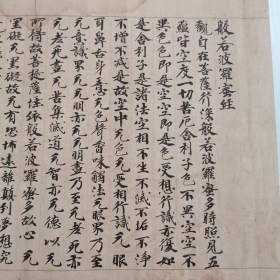 般若波羅蜜經
觀自在菩薩行深般若波羅蜜多時照見五
蘊皆空度一切苦厄舍利子色不異空空不
異色色即是空空即是色受想行識亦復如
是舍利子是諸法空相不生不滅不垢不淨
不增不減是故空中无色无受想行識无眼
耳鼻舌身意无色聲香味觸法无眼界乃至
无意識界无无明亦无无明盡乃至无老死亦
无老死盡无苦集滅道无智亦无德以无
所得故菩提薩埵依般若波羅蜜多故心无
罣礙无罣礙故无有恐怖遠離顛倒夢想究